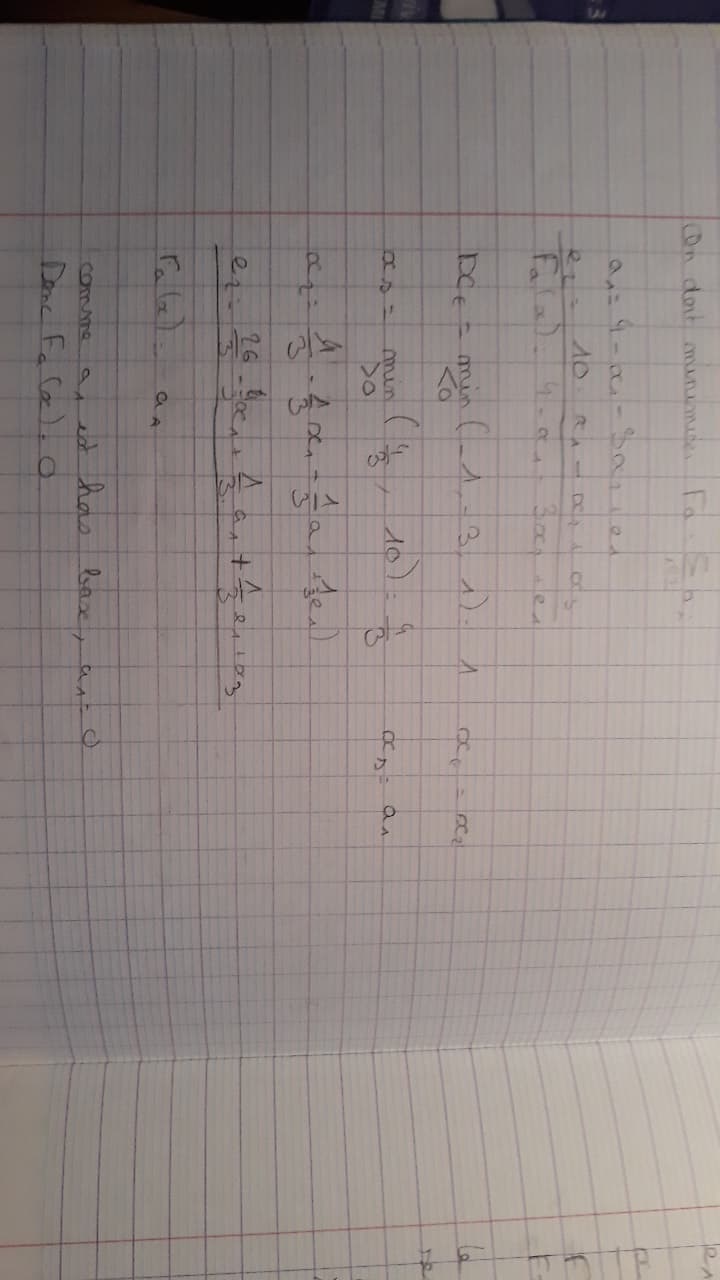 On doit minimiser Fa = Σ ai
a1 = 4 - x1 - 3x2 + e1
e2 = 10 - x1 - x2 + x3
Fa(x) = 4 - x1 - 3x2 + e1
xe = min (-1, -3, 1) = 1 xe = x2
<0
xs = min (4/3, 10) = 4/3 xs = a1
>0
x2 = 4/3 - 1/3 x1 - 1/3 a1 + 1/3 e1)
e2 = 26/3 - x1 + 1/3 a1 + 1/3 e1 + x3
Fa(x) = a1
comme a1 est hors base, a1 = 0
Donc Fa(x) = 0